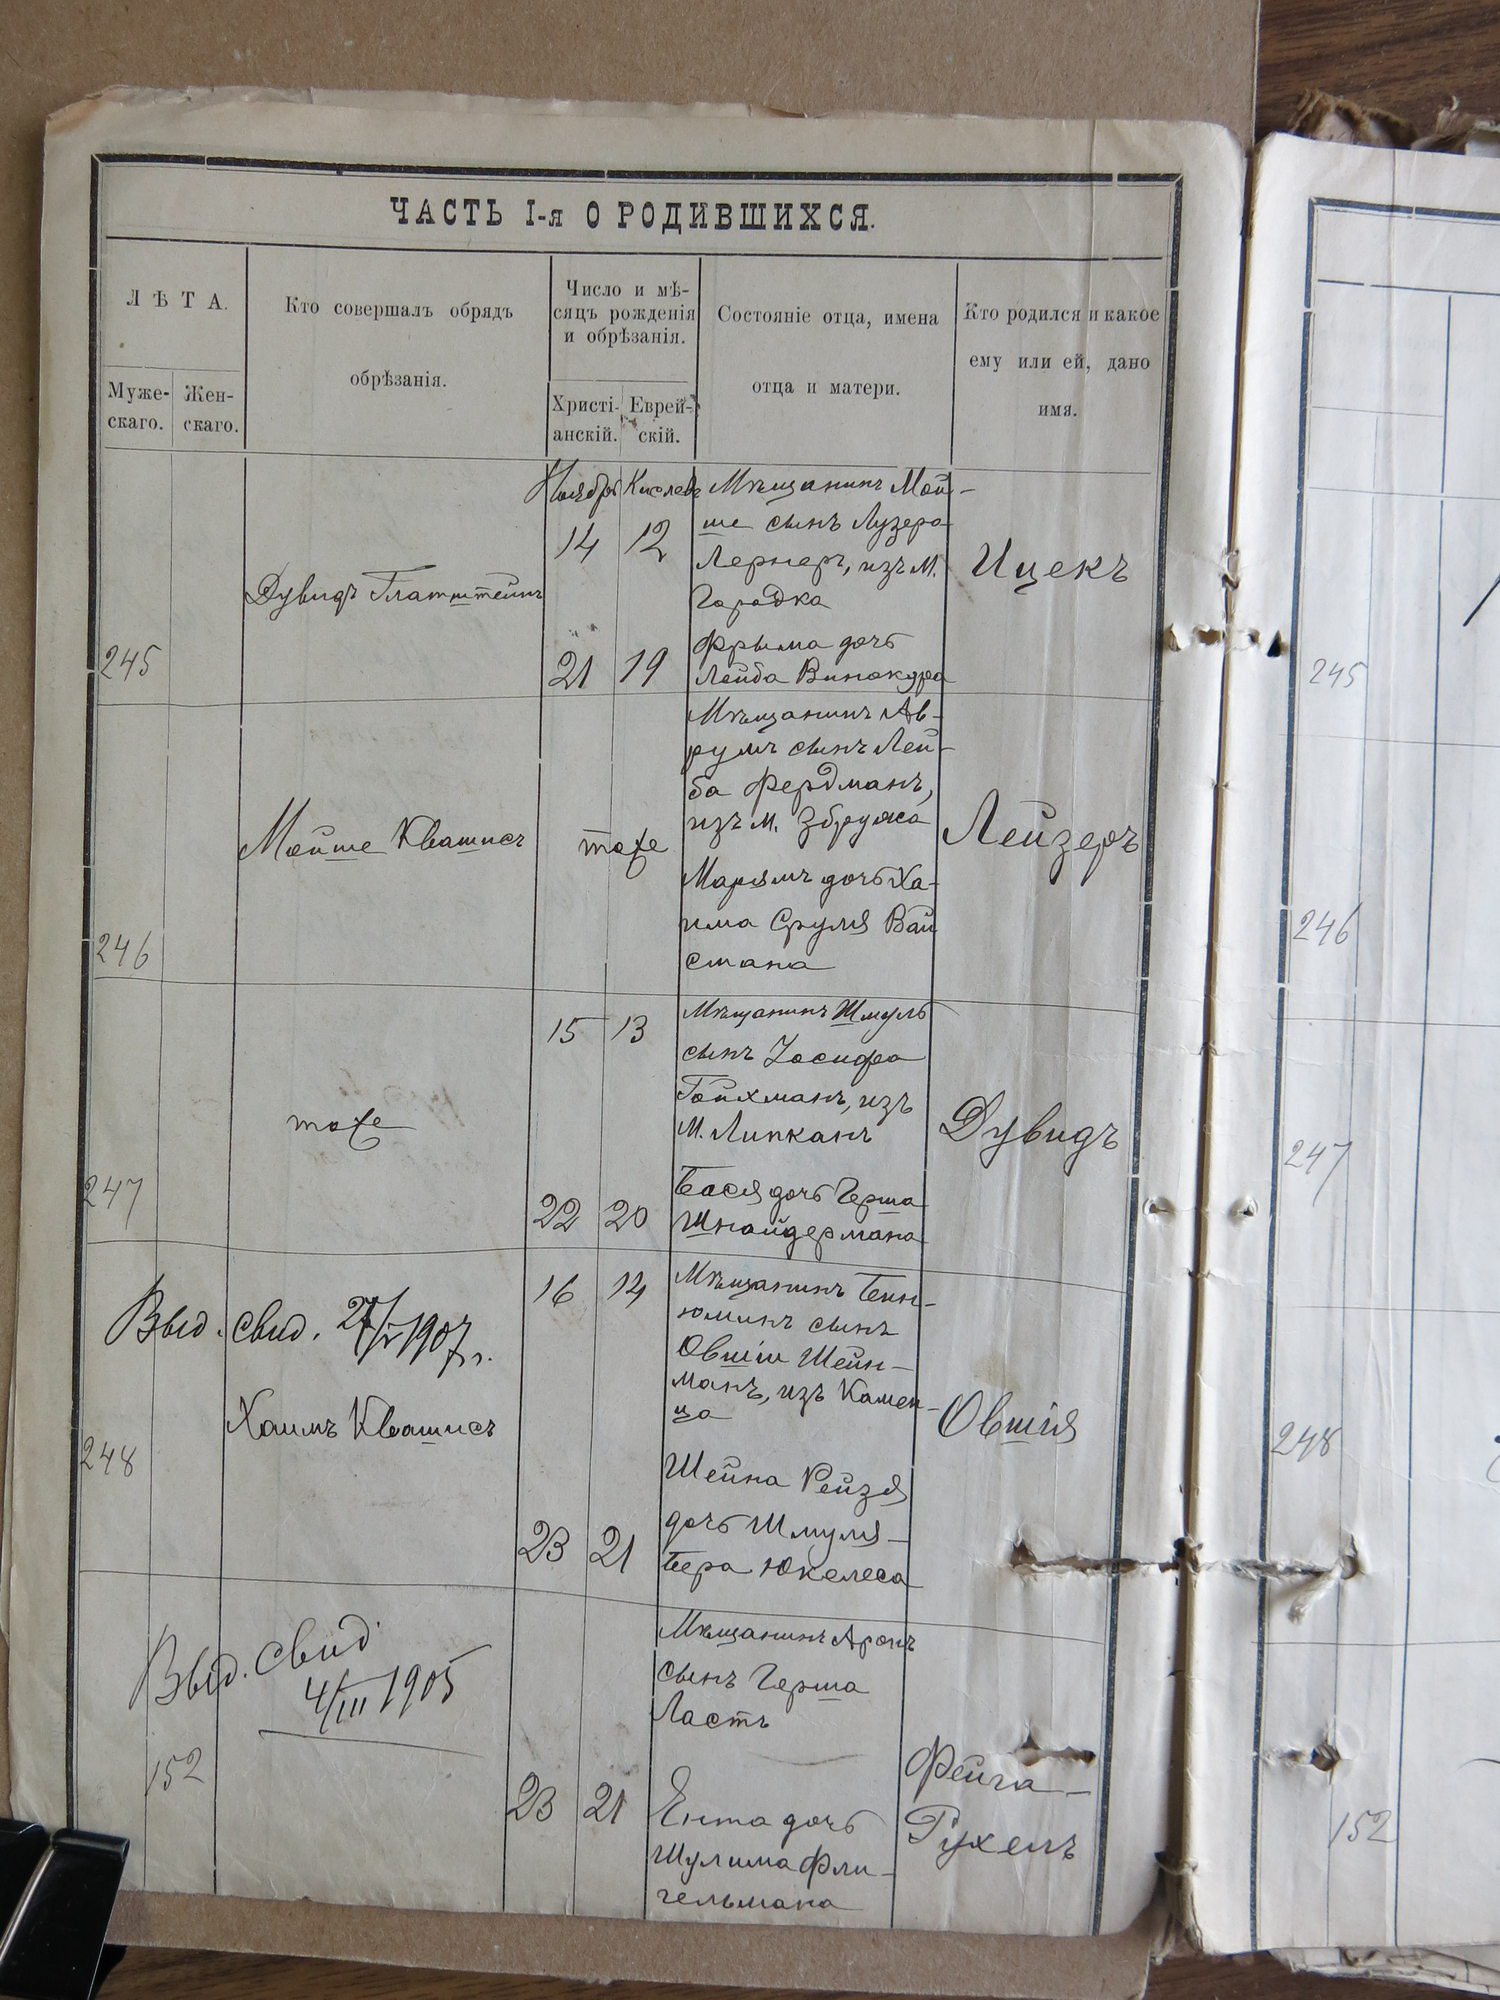 ЧАСТЬ I-я О РОДИВШИХСЯ.
ЛѢТА.
Муже-
скаго.
Жен-
скаго.
Кто совершалъ обрядъ
обрѣзанія.
Число и мѣ-
сяцъ рожденія
и обрѣзанія.
Христі-
анскій.
Еврей-
скій.
Состояніе отца, имена
отца и матери.
Кто родился и какое
ему или ей, дано
имя.
245
Дувидъ Глатштейнъ
Ноябрь Кислевъ
14 12
21 19
Мѣщанинъ Мой-
ше сынъ Лузера
Лернеръ, изъ м.
Городка
Фрыма дочь
Лейба Винокура
Ицекъ
246
Мойше Квашисъ
тоже
Мѣщанинъ Ав-
румъ сынъ Лей-
ба Фердманъ,
изъ м. Збружа
Марямъ дочь Ха-
има Сруля Вай
смана
Лейзеръ
247
тоже
15 13
22 20
Мѣщанинъ Шмуль
сынъ Іосифа
Гойхманъ, изъ
м. Липканъ
Бася дочь Герша
Шнайдермана
Дувидъ
Выд. свид. 27/V 1907 г.
248
Хаимъ Квашисъ
16 14
23 21
Мѣщанинъ Бень-
юминъ сынъ
Овшіи Шейн-
манъ, изъ Камен-
ца
Шейна Рейзя
дочь Шмуля-
Бера Юкелеса
Овшія
Выд. свид.
4/III 1905
152
23 21
Мѣщанинъ Аронъ
сынъ Герша
Ластъ
Ента дочь
Шулима Фли-
гельмана
Фейга-
Рухель
245
246
247
248
152